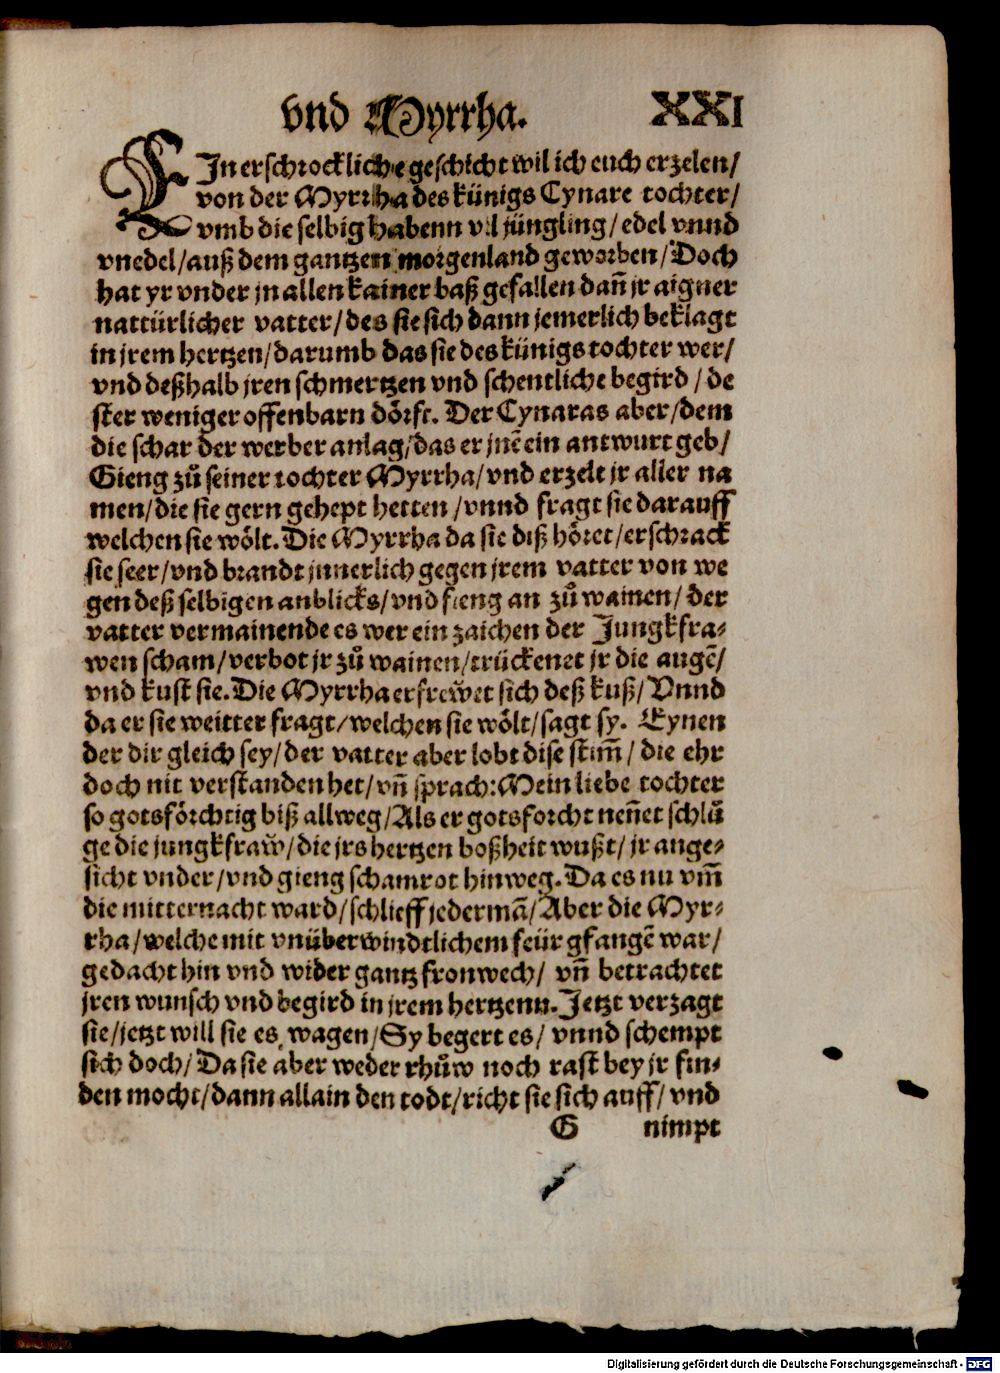 vnd Myrrha. XXI
EIn erschrockliche geschicht wil ich euch erzelen/
von der Myrrha des künigs Cynare tochter/
vmb die selbig habenn vil jüngling/ edel vnnd
vnedel/ auß dem gantzen morgenland geworben/ Doch
hat yr vnder jn allen kainer baß gefallen dañ jr aigner
nattürlicher vatter/ des sie sich dann jemerlich beklagt
in jrem hertzen/ darumb das sie des künigs tochter wer/
vnd deßhalb jren schmertzen vnd schentliche begird/ de
ster weniger offenbarn dörft. Der Cynaras aber/ dem
die schar der werber anlag/ das er jnẽ ein antwurt geb/
Gieng zů seiner tochter Myrrha/ vnd erzelt jr aller na
men/ die sie gern gehept hetten/ vnnd fragt sie darauff
welchen sie wölt. Die Myrrha da sie diß höret/ erschrack
sie seer/ vnd brandt jnnerlich gegen jrem vatter von we
gen deß selbigen anblicks/ vnd fieng an zů wainen/ der
vatter vermainende es wer ein zaichen der Jungkfra⸗
wen scham/ verbot jr zů wainen/ trückenet jr die augẽ/
vnd kust sie. Die Myrrha erfrewͦet sich deß kuß/ Vnnd
da er sie weitter fragt/ welchen sie wölt/ sagt sy. Eynen
der dir gleich sey/ der vatter aber lobt dise stim̃/ die ehr
doch nit verstanden het/ vñ sprach: Mein liebe tochter
so gotsförchtig biß allweg/ Als er gotsforcht neñet schlů
ge die jungkfraw̃/ die jrs hertzen boßheit wußt/ jr ange⸗
sicht vnder/ vnd gieng schamrot hinweg. Da es nu vm̃
die mitternacht ward/ schlieff jedermã/ Aber die Myr⸗
rha/ welche mit vnüberwindtlichem feür gfangẽ war/
gedacht hin vnd wider gantz fronwech/ vñ betrachtet
jren wunsch vnd begird in jrem hertzenn. Jetzt verzagt
sie/ jetzt will sie es wagen/ Sy begert es/ vnnd schempt
sich doch/ Da sie aber weder rhůw noch rast bey jr fin⸗
den mocht/ dann allain den todt/ richt sie sich auff/ vnd
G nimpt
Digitalisierung gefördert durch die Deutsche Forschungsgemeinschaft - DFG